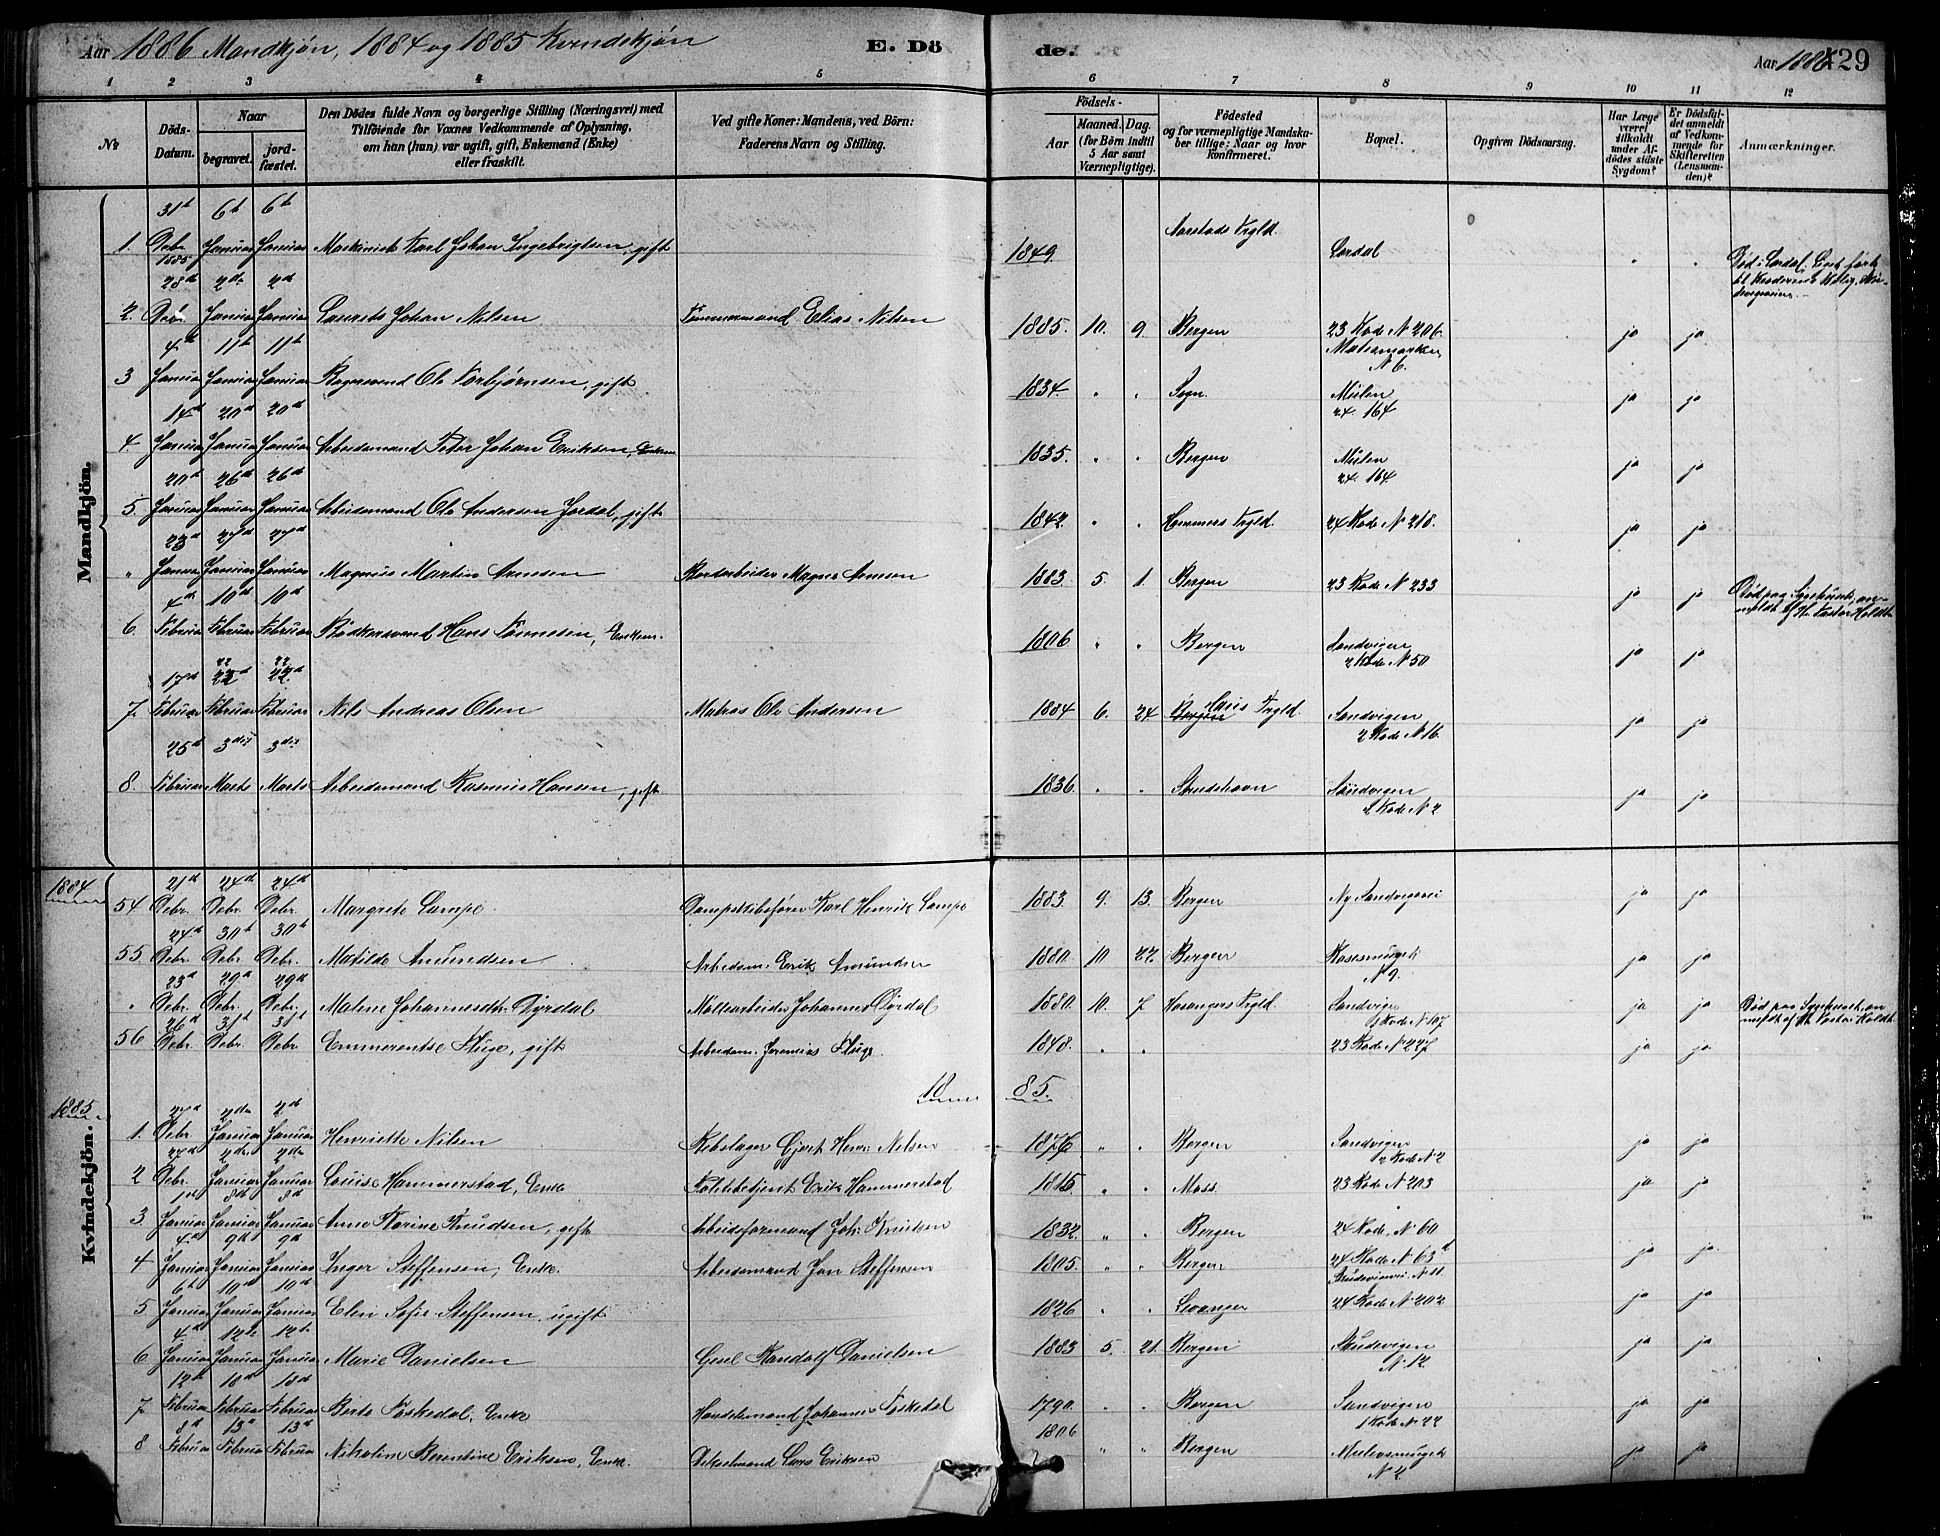 Aar 1886 Mandkjøn, 1884 og 1885 Kvindekjøn E. Dö de. Aar 1886 129
1 2 3 4 5 6 7 8 9 10 11 12
No Döds-Datum. Naar begravet. jordfæstet. Den Dödes fulde Navn og borgerlige Stilling (Næringsvei) med Tilföiende for Voxnes Vedkommende af Oplysning, om han (hun) var ugift, gift, Enkemand (Enke) eller fraskilt. Ved gifte Koner: Mandens, ved Börn: Faderens Navn og Stilling. Födsels- Aar Maaned. Dag. (for Börn indtil 5 Aar samt Værnepligtige). Födested og for værnepligtige Mandskaber tillige: Naar og hvor konfirmeret. Bopæl. Opgiven Dödsaarsag. Har Læge været tilkaldt under Afdödes sidste Sygdom? Er Dödsfaldet anmeldt af Vedkommende for Skifteretten (Lensmanden)? Anmærkninger.
Mandkjön.
31te 6te 6te
1. Debr. 1885 Januar Januar Maskinist Karl Johan Ingebrigtsen, gift 1849. Aarstads Prgld. " "
28de 2den 2d
2. Debr. Januar Januar Laurits Johan Nilsen Tømmermand Elias Nilsen 1885. 10. 9. Bergen 23 Rode N 206. N 6. ja ja
4de 11te 11te
3 Januar Januar Januar Bagersvend Ole Torbjørnsen, gift 1834. " " Sogn. Mülen 24. 164 ja ja
14de 20de 20de
4. Januar Januar Januar Arbeidsmand Peder Johan Eriksen, Enkem 1835. " " Bergen Mülen 24. 164 ja ja
20de 26de 26de
5 Januar Januar Januar Arbeidsmand Ole Andersen Jordal, gift 1842. " " Hammers Prgld. 24 Rode N 218. ja ja
23de 27de 27de
" Januar Januar Januar Magnus Martin Arnesen Magnus Arnesen 1883 5. 1. Bergen 23 Rode N 233 ja ja Død paa Sygehuset, anmeldt af Hr. Pastor Holdt
4de 10de 10de
6. Februar Februar Februar Bødkersvend Hans Tønnesen, Enkem. 1806 " " Bergen Sandvigen 2 Rode N 50 ja ja
17de 22 22de 22 22de
7. Februar Februar Februar Nils Andreas Olsen Matros Ole Andersen 1884 6. 24 Bergen Prgld. Sandvigen 2 Rode N 16. ja ja
25de 3die 3die
8. Februar Marts Marts Arbeidsmand Rasmus Hansen, gift 1836. " " Sandvigen 2 Rode N 2 ja ja
1884
21de 24de 24de
54 Debr. Debr. Debr. Margrete Lampe. Dampskibsfører Karl Henrik Lampe 1883. 9. 13. Bergen Ny Sandvigsvei ja ja
24de 30te 30te
55 Debr. Debr. Debr. Matilde Amundsen Arbeidsm. Erik Amundsen 1880. 10 22. Bergen N 9. ja ja
23de 29de 29de
" Debr. Debr. Debr. Malene Johannesdtr. Dyrdal Møllearbeider Johannes Dyrdal 1880. 10. 7 Hosangers Prgld Sandvigen 1 Rode N 107 ja ja Død paa Sygehuset, anmeldt af Hr. Pastor Holdt.
26de 31te 31te
56 Debr. Debr. Debr. Emmerentse Fluge, gift Arbeidsm. Jeremias Fluge. 1848. " " 23 Rode N 227 ja ja
18 85.
1885
Kvindekjön.
27de 2den 2den
1. Debr. Januar Januar Henriette Nilsen Rebslager Gjert Henr. Nilsen 1876 " " Bergen Sandvigen 2 Rode N 2 ja ja
27de 2den 2den
2 Debr. Januar Januar Louise Hammerstad, Enke Politibetjent Erik Hammerstad 1815. " " Moss 23 Rode N 203 ja ja
1ste 8de 8de
3 Januar Januar Januar Anne Karine Knudsen, gift Arbeidsformand Joh. Knudsen 1832. " " Bergen 24 Rode N 60 ja ja
4de 9de 9de
4 Januar Januar Januar Inger Steffensen, Enke. Arbeidsmand Jan Steffensen 1805. " " Bergen 24 Rode N 63 ja ja
6te 10de 10de
5 Januar Januar Januar Elen Sofie Steffensen, ugift 1826 " " Levanger 24 Rode N 202 ja ja
4de 12te 12te
6 Januar Januar Januar Marie Danielsen Danielsen 1883 5. 21. Bergen Sandvigen N 12. ja ja
12te 18de 18de
7 Februar Februar Februar Berte Foskedal, Enke Handelsmand Johannes Foskedal 1790. " " Bergen Sandvigen 1 Rode N 22 ja ja
8de 13de 13de
8 Februar Februar Februar Nikoline Berentine Eriksen, Enke. Lars Eriksen 1806 " " Bergen N 2. ja ja